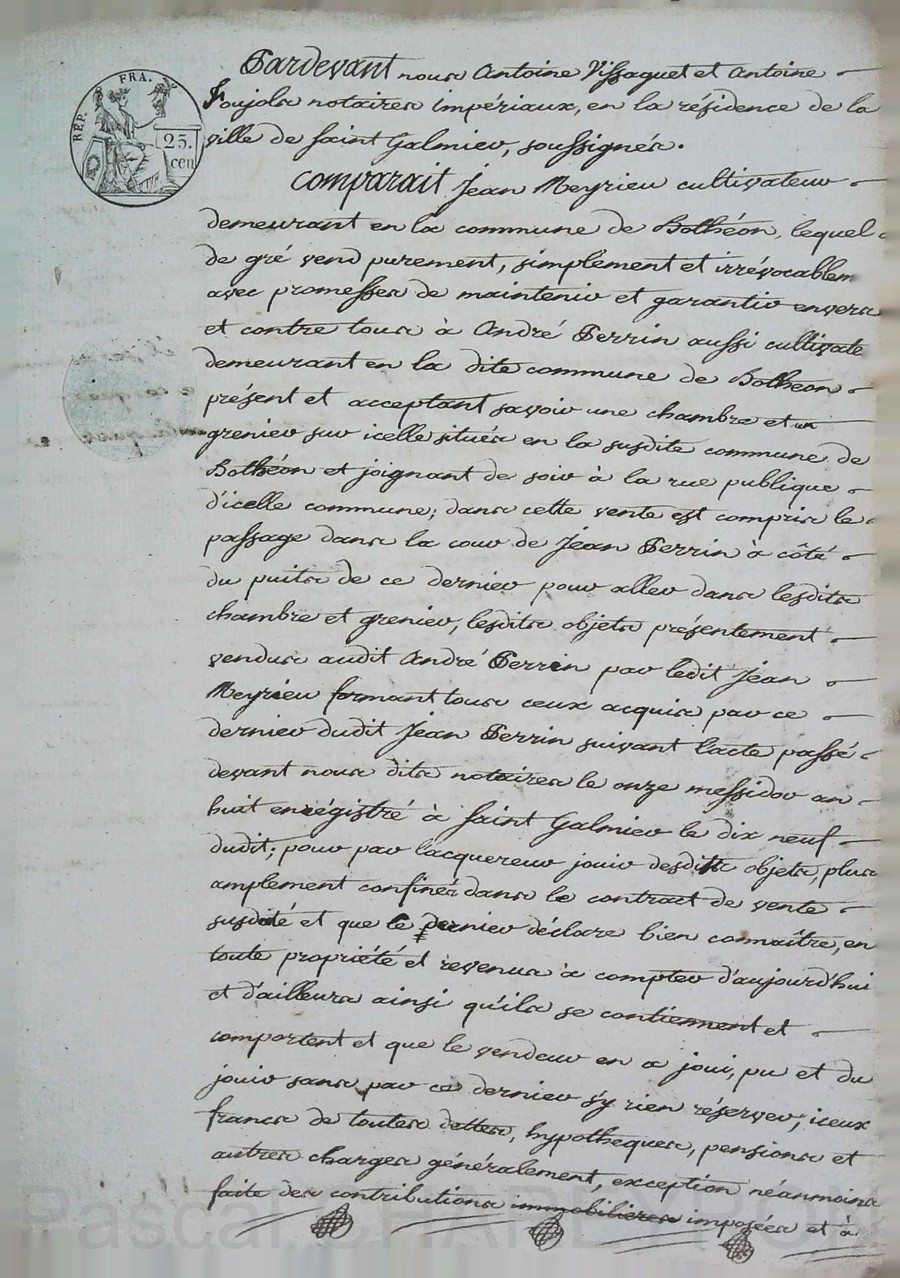 REP. FRA.
25.
cen
Pardevant nous Antoine Vissaguet et Antoine
Poujols notaires impériaux, en la résidence de la
ville de Saint Galmier, soussignés.
comparait Jean Meyrieu cultivateur
demeurant en la commune de Bothéon, lequel
de gré vend purement, simplement et irrévocablem
avec promesses de maintenir et garantir envers
et contre tous à André Perrin aussi cultivate
demeurant en la dite commune de Bothéon
présent et acceptant savoir une chambre et un
grenier sur icelle situés en la susdite commune de
Bothéon et joignant de soir à la rue publique
d'icelle commune; dans cette vente est compris le
passage dans la cour de Jean Perrin à côté
du puits de ce dernier pour aller dans lesdits
chambre et grenier, lesdits objets présentement
vendus audit André Perrin par ledit Jean
Meyrieu formant tous ceux acquis par ce
dernier dudit Jean Perrin suivant l'acte passé
devant nous dits notaires le onze messidor an
huit enrégistré à Saint Galmier le dix neuf
dudit; pour par l'acquereur jouir desdits objets, plus
amplement confinés dans le contract de vente
susdaté et que le dernier déclare bien connaître, en
toute propriété et revenus à compter d'aujourd'hui
et d'ailleurs ainsi qu'ils se contiennent et
comportent et que le vendeur en a joui, pu et du
jouir sans par ce dernier s'y rien réserver; iceux
francs de toutes dettes, hypotheques, pensions et
autres charges généralement, exception néanmoins
faite des contributions immobilieres imposées et à
Pascal CHAREYRON